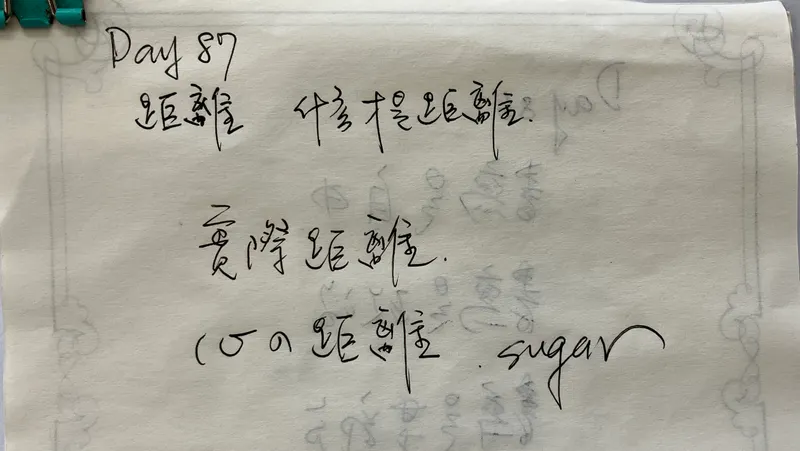 Day 87
距離 什麼才是距離.
實際距離.
心の距離. sugar